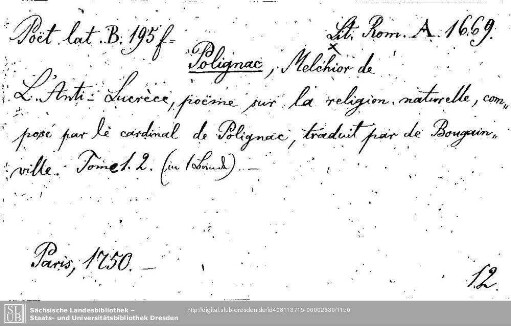 Poët lat. B. 195 f= Lit. Rom. A. 1669.
Polignac, Melchior de
L'Anti-Lucrèce, poëme sur la religion naturelle, com=
posé par le cardinal de Polignac, traduit par de Bougain=
ville. Tome 1. 2. (in 1 Band) —
Paris, 1750. —
12.
Sächsische Landesbibliothek –
Staats- und Universitätsbibliothek Dresden